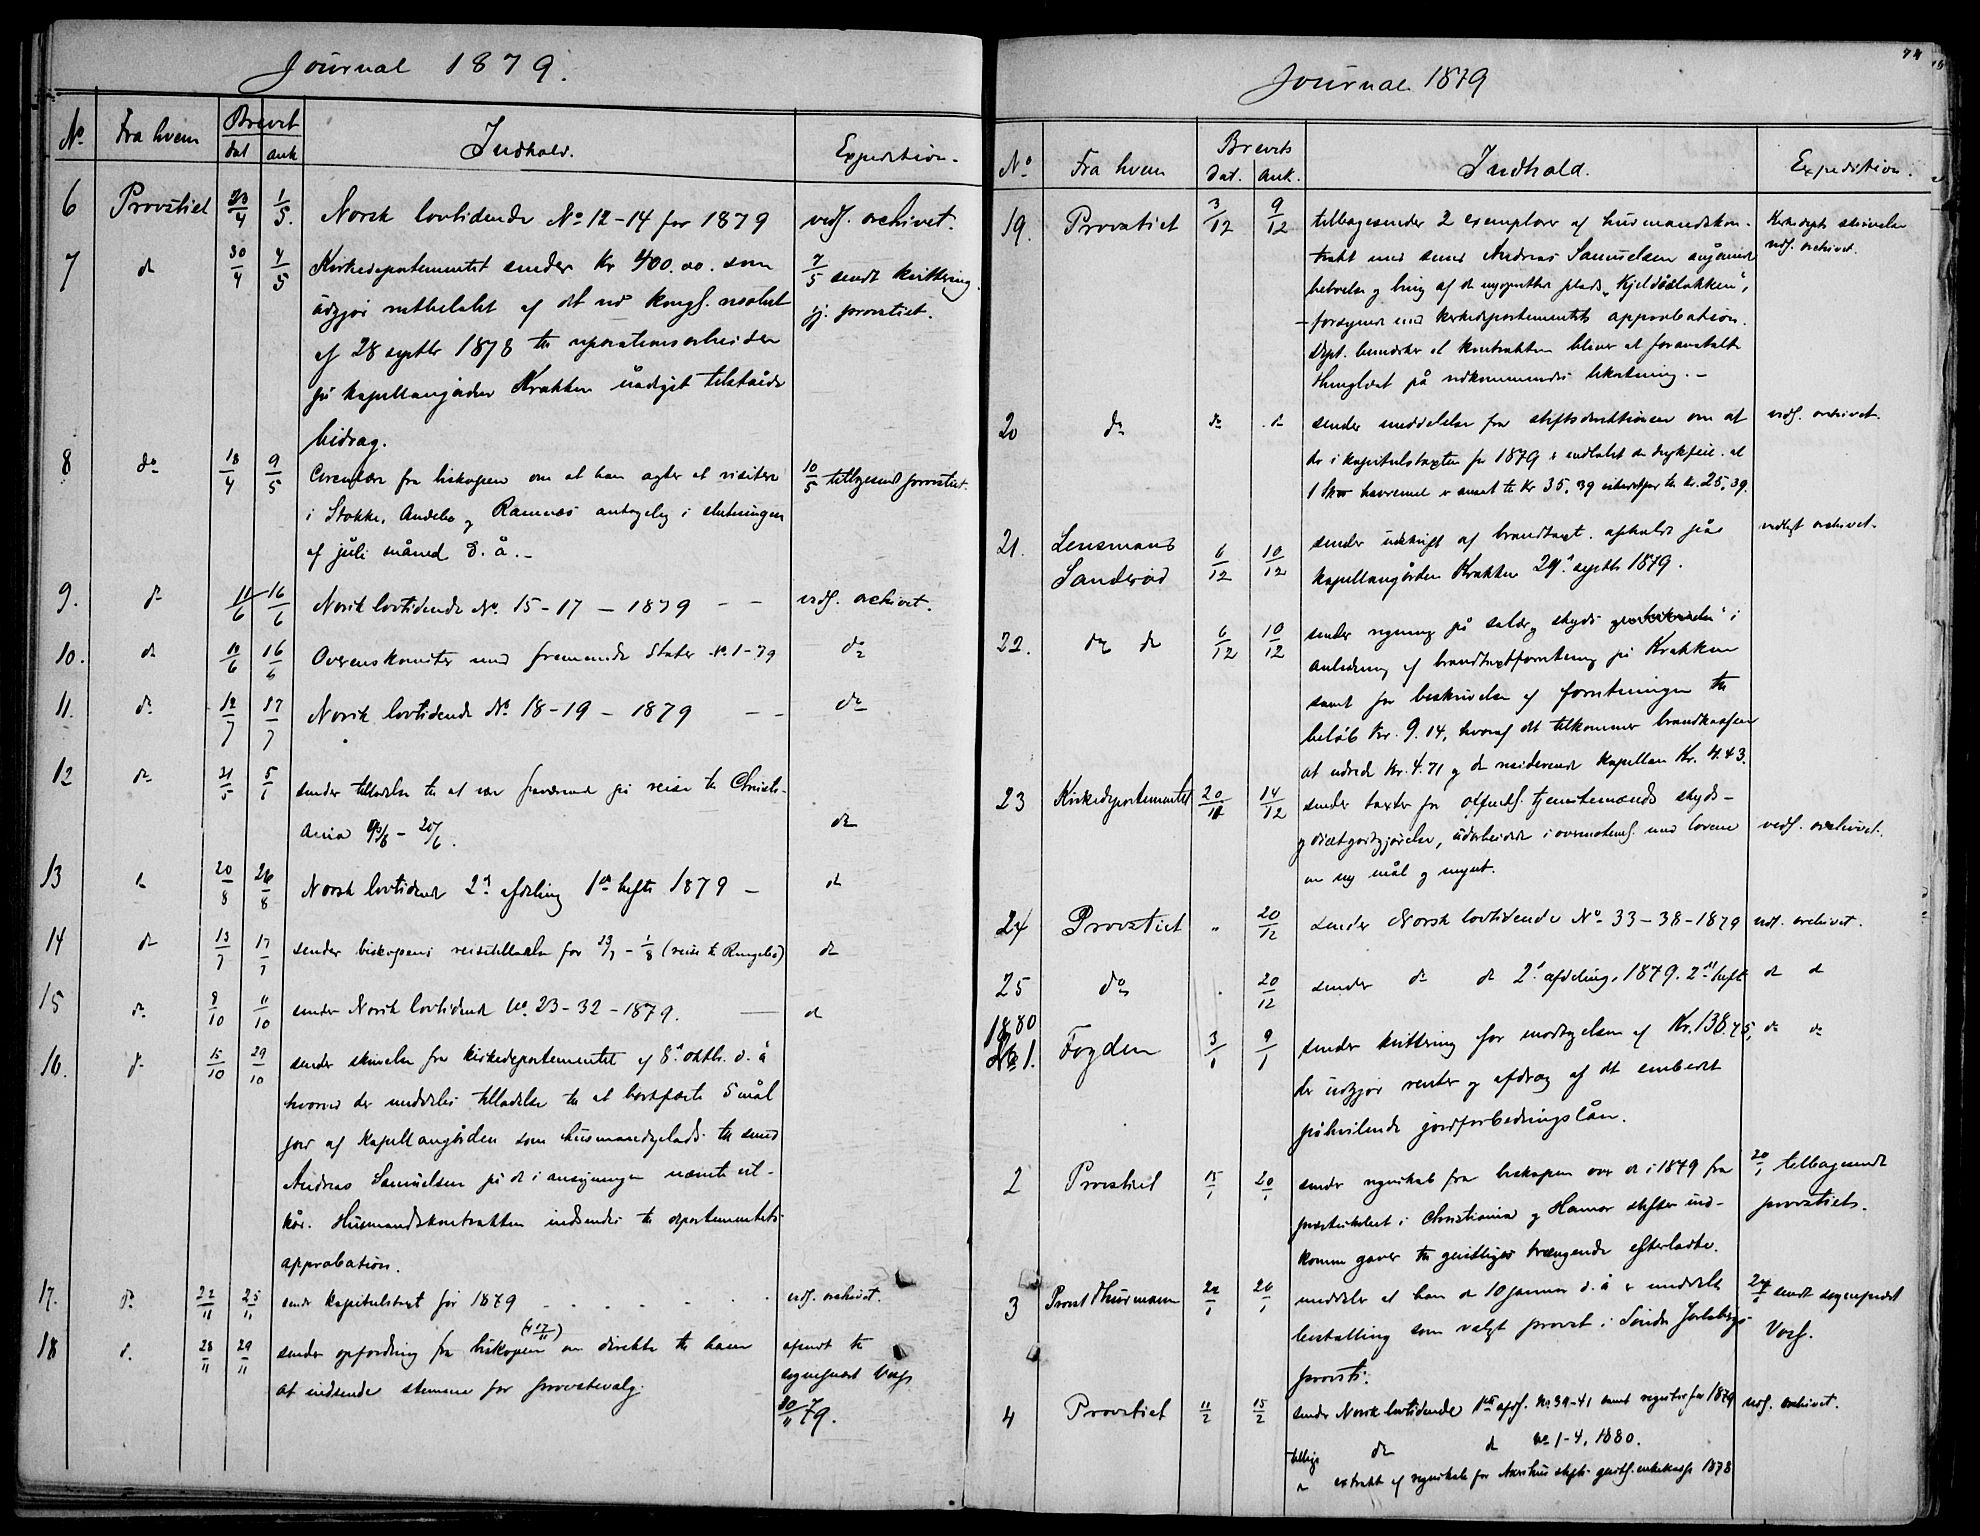 Journal 1879.
No. Fra hvem Brevet dat ank Indhold. Expedition.
6 Provstiet 23/4 1/5. Norsk lovtidende No 12-14 for 1879 vedl. archivet.
7 do 30/4 4/5 Kirkedepartementet sender Kr 400.00. som 7/5 sendt kvittering
udgjør restbeløbet af det ved kongl. resolut gj. provstiet.
af 28 septbr 1878 til reparationsarbeider
på kapellangården Krakken nådigst tilståede
bidrag.
8 do 18/4 9/5 Circulære fra biskopen om at han agter at visitere 10/5 tilbagesendt provstiet.
i Stokke, Andebu og Ramnæs antagelig i slutningen
af juli måned d. å. -
9. do 11/6 16/6 Norsk lovtidende No. 15-17 - 1879 - - vedl. archivet.
10. do 10/6 16/6 Overenskomster med fremmede stater No. 1-79 do
11. do 12/7 17/7 Norsk lovtidende No 18-19 - 1879 - - do
12 do 21/5 5/6 sender tilladelse til at være fraværende på reise til Christi-
ania - 20/6. do
13 do 20/8 26/8 Norsk lovtidende 2d afdeling 1ste hefte 1879 - do
14 do 13/7 17/7 sender biskopens reisetilladelse for 23/7 - 1/8 (reise til Ringebo) do
15 do 8/10 11/10 sender Norsk lovtidende No. 23-32 - 1879. do
16. do 15/10 29/10 sender skrivelse fra kirkedepartementet af 8de oktbr. d. å
hvorved der meddeles tilladelse til at bortfæste 5 mål
jord af kapellangården som husmandsplads til smed
Andreas Samuelsen på de i ansøgningen nævnte vil-
kår. Husmandskontrakten indsendes til departementets
approbation.
17. do 22/11 25/11 sender kapitelstaxt for 1879 vedl. archivet.
18 do 28/11 29/11 sender opfordring fra biskopen (af 17/11) om direkte til ham afsendt til
at indsende stemme for provstevalg. sognepræst Vogt
30/11 79.
74
Journal 1879
No Fra hvem Brevets Dat. Ank. Indhold. Expedition.
19. Provstiet 3/12 9/12 tilbagesender 2 exemplarer af husmandskon- Kirkedepts skrivelse
trakt med smed Andreas Samuelsen angående vedl. archivet.
bebyelse og brug af den nyoprettede plads "Kjeldåsløkken",
- forsynede med kirkedepartementets approbation.
Dept. bemærker at kontrakten bliver at foranstalte
thinglæst på vedkommendes bekostning. -
20 do do do sender meddelelse fra stiftsdirektionen om at vedl. archivet.
der i kapitelstaxten for 1879 er indløbet en trykfeil. at
1 havremel er ansat til Kr 35,39 istedetfor til Kr. 25,39.
21. Lensmand 6/12 10/12 sender udskrift af brandtaxt. afholdt på vedlagt archivet.
Sanderød kapellangården Krakken 29de septbr 1879.
22. do do 6/12 10/12 sender regning på salær og skyds i
anledning af brandtaxtforretning på Krakken
samt for beskrivelse af forretningen til
beløb Kr. 9.14, hvoraf det tilkommer brandkassen
at udrede Kr. 4.71 og den residerende kapellan Kr. 4.43.
23 Kirkedepartementet 20/11 14/12 sender taxter for offentl. tjenestemænds skyds-
og diætgodtgjørelse, udarbeidede i overensstemmelse med lovene vedl. archivet.
om ny mål og mynt.
24 Provstiet " 20/12 sender Norsk lovtidende No. 33-38-1879 vedl. archivet.
25 do . 20/12 sender do do 2d afdeling, 1879. 2det hefte do do
1880
No 1. Fogden 3/1 9/1 sender kvittering for modtagelsen af Kr. 138.75, do do
der udgjør renter og afdrag af det embedet
påhvilende jordforbedringslån.
2 Provstiet 15/1 20/1 sender regnskab fra biskopen over de i 1879 fra 20/1 tilbagesendt
præsteskabet i Christiania og Hamar stifter ind- provstiet.
komne gaver til geistliges trængende efterladte.
3 Provst Thurmann 22/1 26/1 meddeler at han den 10 januar d. å er meddelt 27/1 sendt sognepræst
bestalling som valgt provst i Søndre Jarlsbergs Vogt.
provsti.
4 Provstiet 11/2 15/2 sender Norsk lovtidende 1ste afdl. No. 39-41 samt register for 1879 vedl. archivet.
tillige do do No 1-4, 1880.
do extrakt af regnskab for Akershus stifts geistl. enkekasse 1878